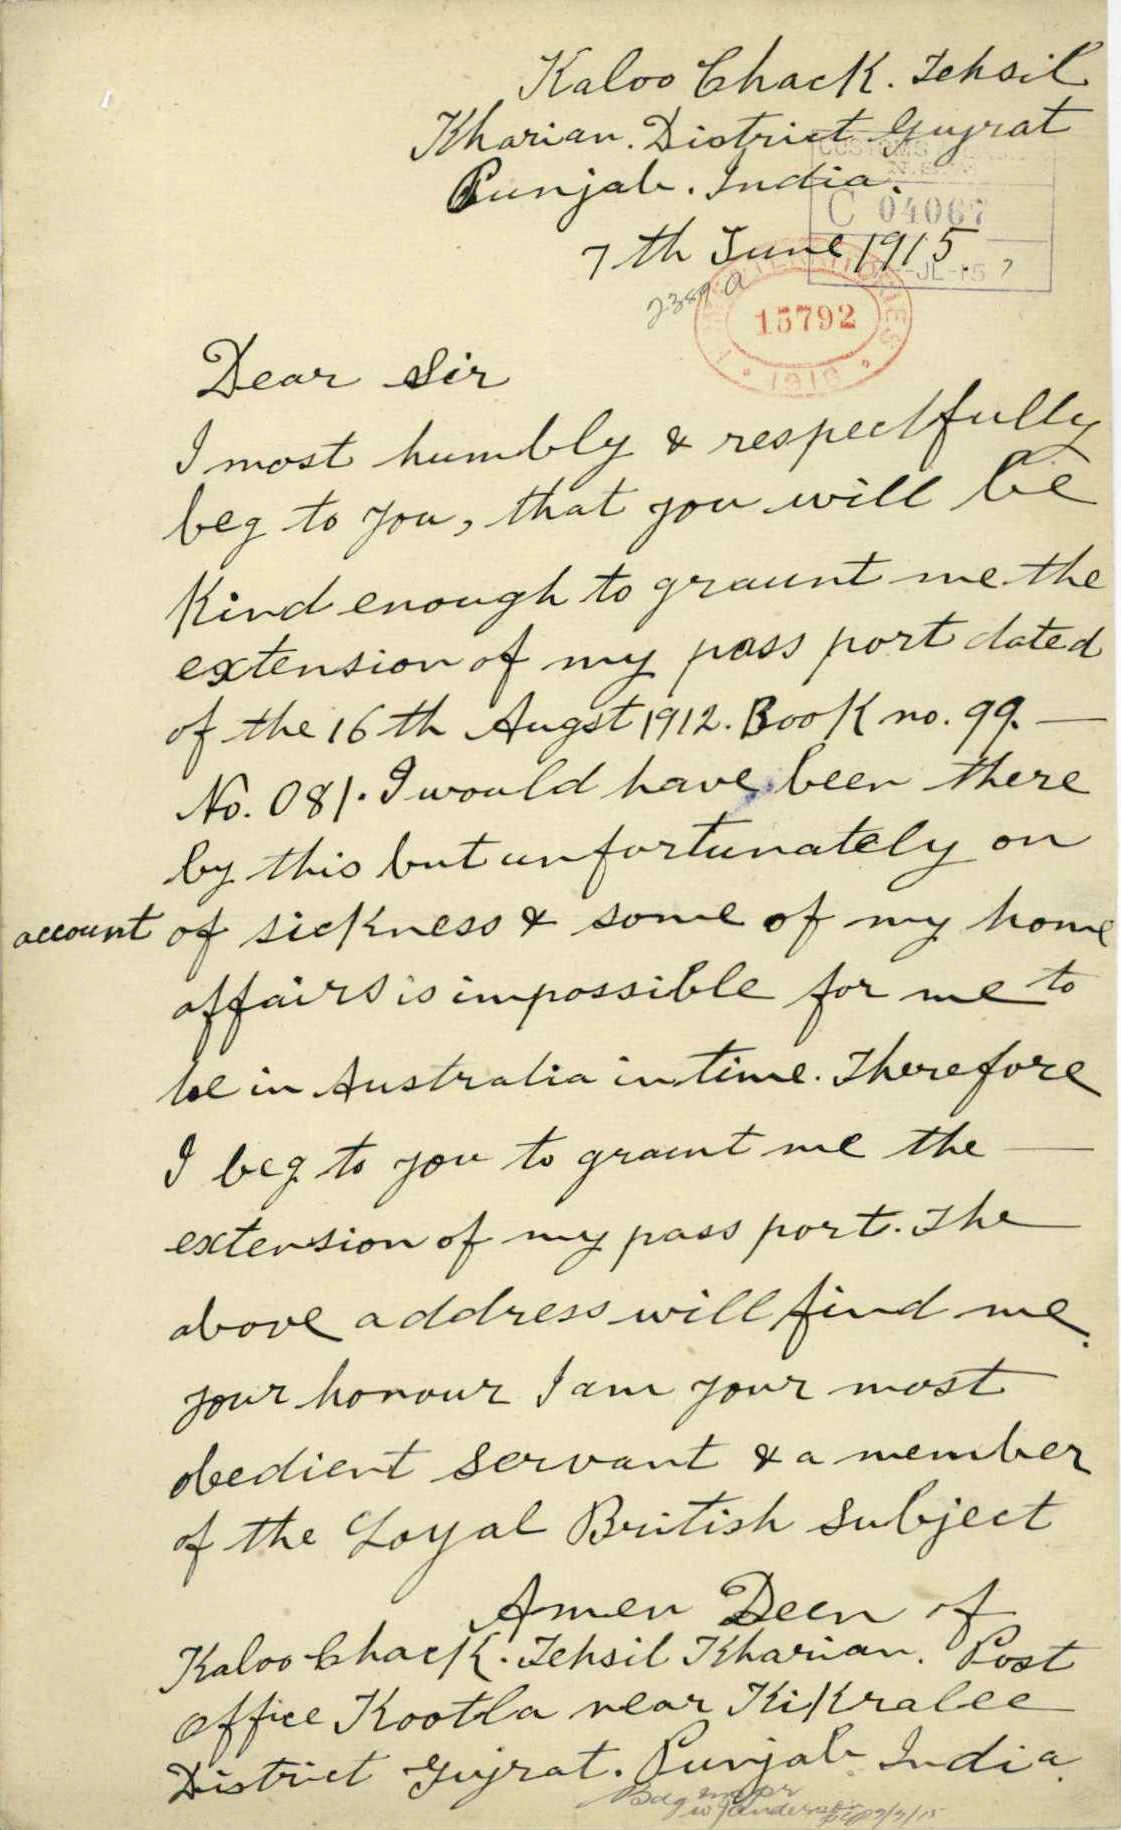 Kaloo Chack. Tehsil
Kharian. District Gujrat
Punjab. India.
CUSTOMS
C 04067
7th June 1915.
JL-15 7
2389
15792
1916
Dear Sir
I most humbly & respectfully
beg to you, that you will be
Kind enough to graunt me the
extension of my pass port dated
of the 16th Augst 1912. Book no. 99. —
No. 081. I would have been there
by this but unfortunately on
account of sickness & some of my home
affairs is impossible for me to
be in Australia in time. Therefore
I beg to you to graunt me the —
extension of my pass port. The
above address will find me.
your honour I am your most
obedient servant & a member
of the Loyal British subject
Amen Deen of
Kaloo Chack. Tehsil Kharian. Post
office Kootla near Kikralee
District Gujrat. Punjab India.